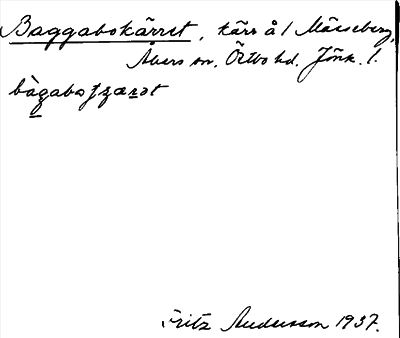 Baggabokärret, kärr å / Mässeberg,
Åkers sn. Östbo hd. Jönk. l.
bàgaboʃɀærət
Fritz Andersson 1937.